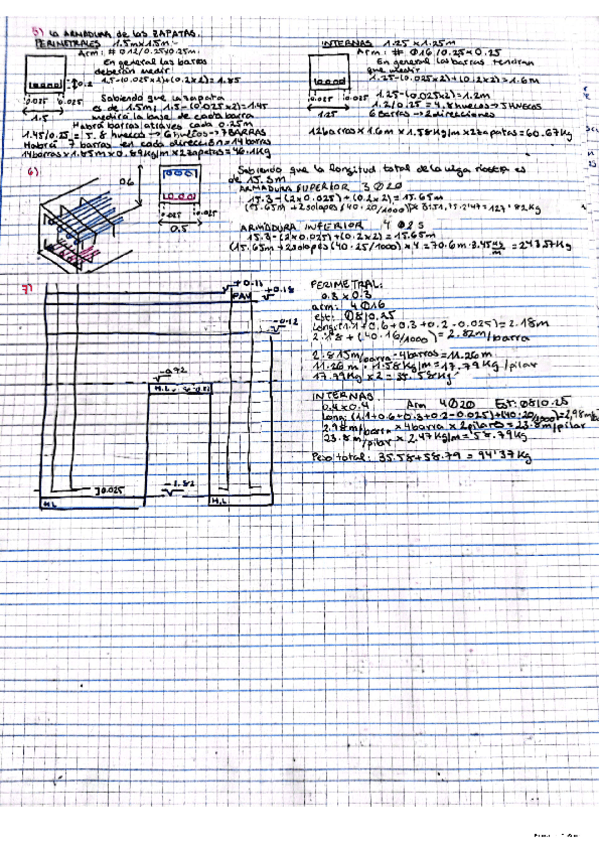 5) LA ARMADURA de las ZAPATAS.
PERIMETRALES 1.5mx1.5m
Arm: # Ø12/0.25x0.25m.
En general las barras
deberán medir
1.5-(0.025x2)+(0.2x2)=1.85
0.2
0.025 0.025
1.5
Sabiendo que la zapata
es de 1.5m, 1.5-(0.025x2)=1.45
medirá la base de cada barra
Habrá barras através cada 0.25m
1.45/0.25 = 5.8 huecos → 6 huecos → 7 BARRAS
Habrá 7 barras en cada dirección = 14 barras
14 barras x 1.85m x 0.89kg/m x 2 zapatas = 46.1kg
INTERNAS 1.25 x 1.25m
Arm: # Ø16/0.25x0.25
En general las barras tendrán
que medir
1.25-(0.025x2)+(0.2x2)=1.6m
0.025 0.025
1.25
1.25-(0.025x2)=1.2m
1.2/0.25 = 4.8 huecos → 5 HUECOS
6 Barras → 2 direcciones
12 barras x 1.6m x 1.58kg/m x 2 zapatas = 60.67kg
6)
0.6
0.025 0.025
0.5
Sabiendo que la longitud total de la viga es
de 15.3m
ARMADURA SUPERIOR 3Ø20
15.3-(2x0.025)+(0.2x2)=15.65m
ARMADURA INFERIOR 4Ø25
15.3-(2x0.025)+(0.2x2)=15.65m
(15.65m + 2 solapes (40·25/1000) x 4 = 70.6m
7)
+0.18
PAV
-0.12
-0.92
H.L
]0.025
-1.82
H.L
PERIMETRAL:
0.3 x 0.3
arm: 4Ø16
est: Ø8/0.25
Long: (1.1+0.6+0.3+0.2-0.025)=2.18m
2.18+(40·16/1000)=2.82m/barra
2.815m/barra·4barras=11.26m
11.26m·1.58kg/m=17.79kg/pilar
17.79kg x 2 = 35.58kg
INTERNAS
0.4x0.4 Arm 4Ø20 EST: Ø8/0.25
Long: (1.1+0.6+0.3+0.2-0.025)+(40·20/1000)=2.98m/b
2.98m/barra x 4barra x 2pilares=23.8m/pilar
23.8m/pilar x 2.47kg/m=58.79kg
Peso total: 35.58+58.79=94'37kg